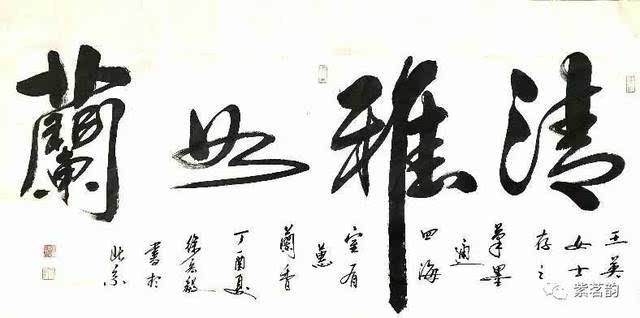 清雅如蘭
王英
女士
存之
筆墨
通
四海
室有
蕙
蘭香
丁酉夏
徐
書於
北京
紫茗韵